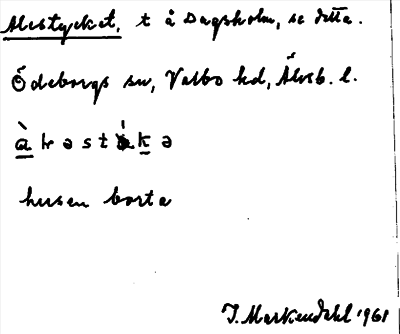 Alestycket, t å Dagsholm, se detta.
Ödeborgs sn, Valbo hd, Älvsb. l.
husen borta
J. Markendahl 1961